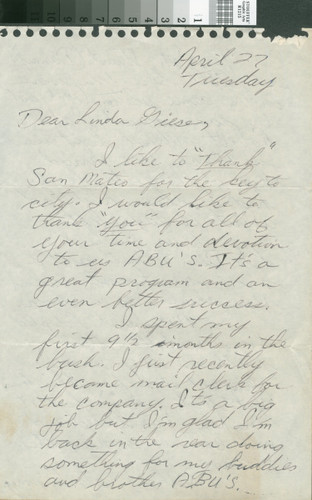 April 27
Tuesday
Dear Linda Giese,
I like to "Thank"
San Mateo for the key to
city. I would like to
thank "you" for all of
your time and devotion
to us ABU'S. It's a
great program and an
even better success.
I spent my
first 9½ months in the
bush. I just recently
became mail clerk for
the company. Its a big
job but I'm glad I'm
back in the rear doing
something for my buddies
and brother ABU'S.